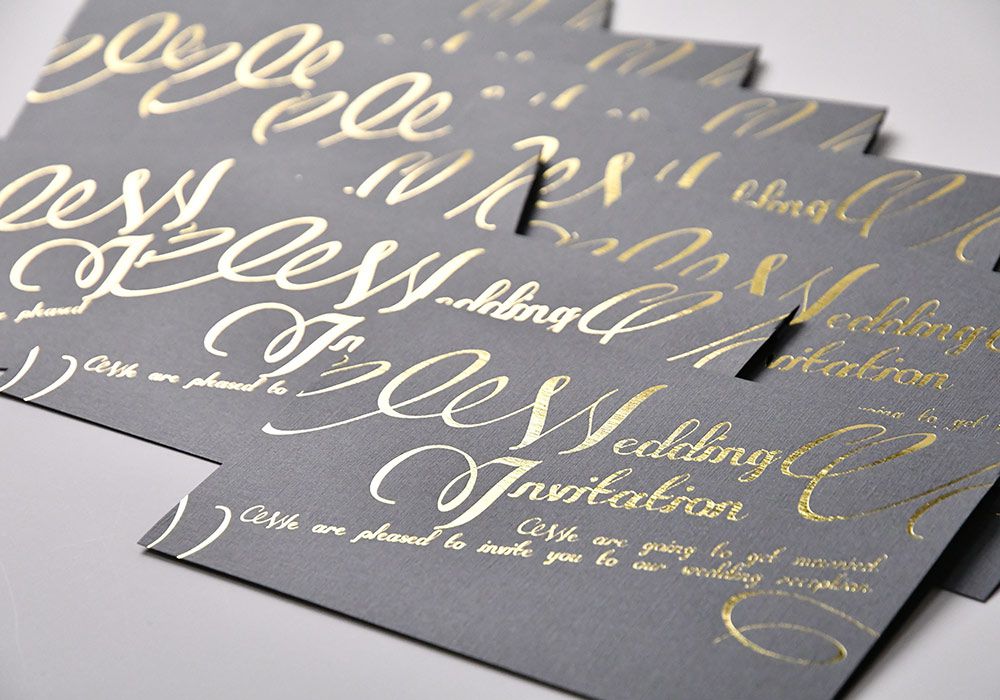 Wedding
Invitation
We are going to get married.
We are pleased to invite you to our wedding reception.
Wedding
In
We are pleased to
Wedding
Invitation
going to get
pleased